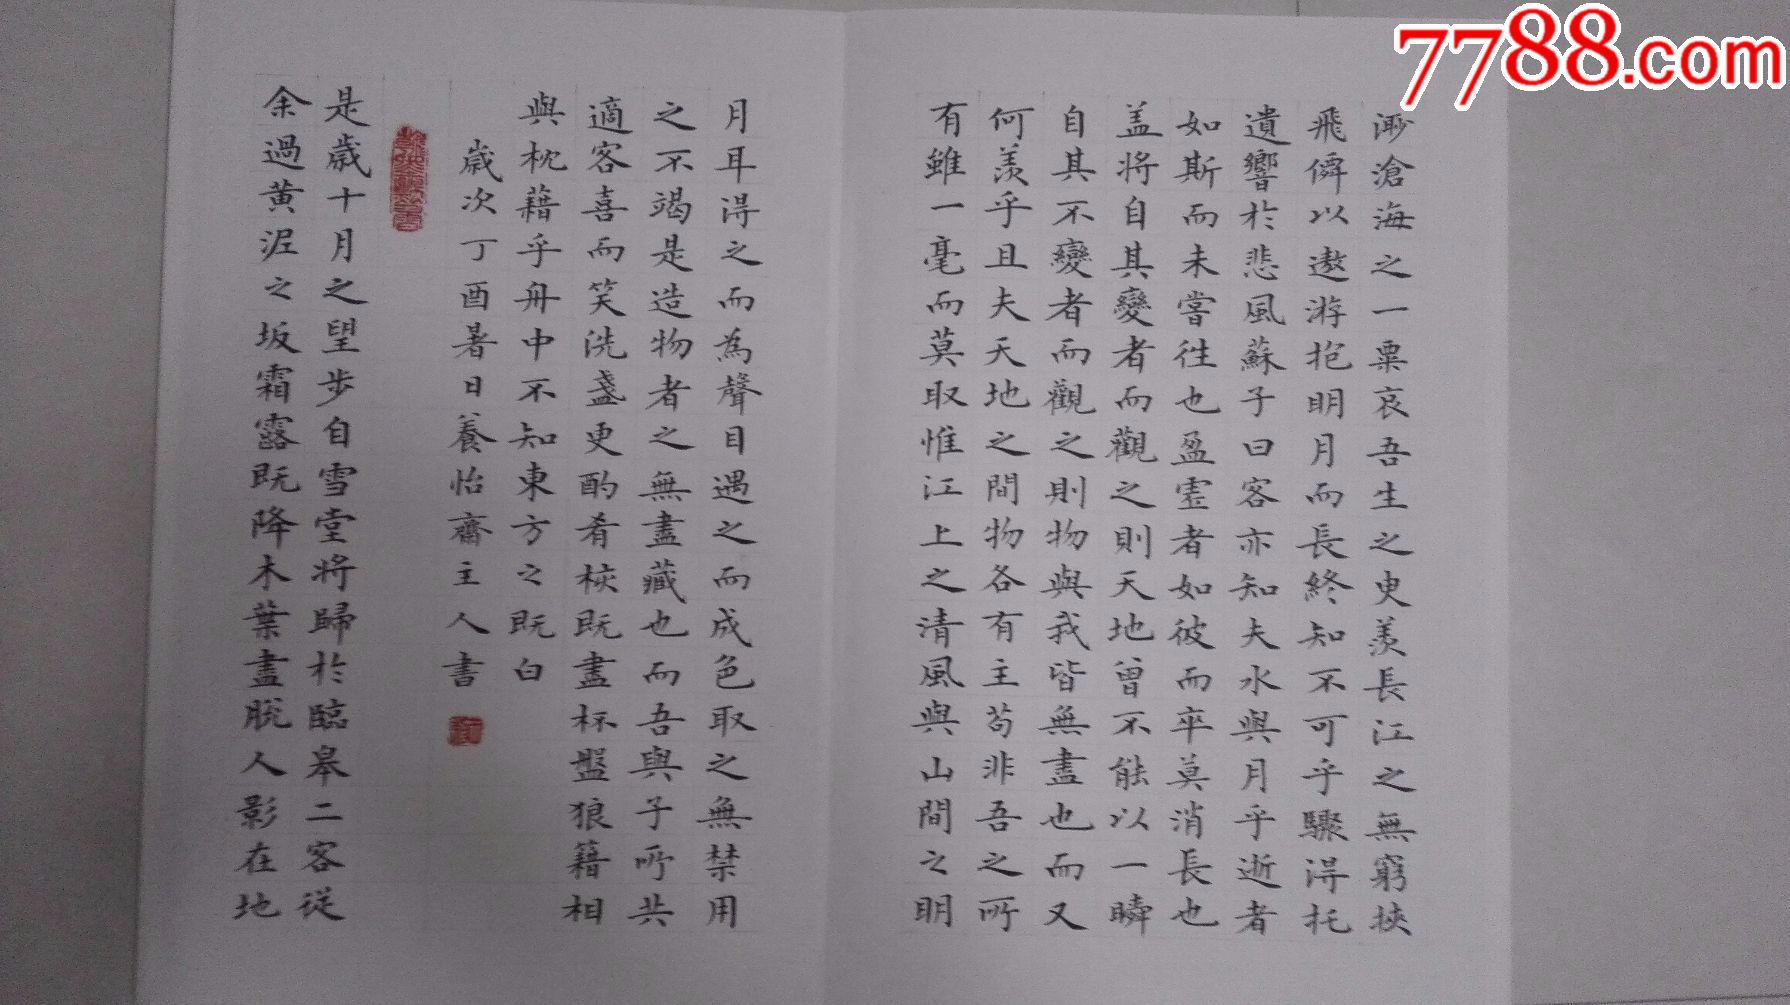 7788.com
渺滄海之一粟哀吾生之臾羨長江之無窮挾
飛僊以遨游抱明月而長終知不可乎驟得托
遺響於悲風蘇子曰客亦知夫水與月乎逝者
如斯而未嘗往也盈虛者如彼而卒莫消長也
盖將自其變者而觀之則天地曾不能以一瞬
自其不變者而觀之則物與我皆無盡也而又
何羨乎且夫天地之間物各有主苟非吾之所
有雖一毫而莫取惟江上之清風與山間之明
月耳得之而為聲目遇之而成色取之無禁用
之不竭是造物者之無盡藏也而吾與子所共
適客喜而笑洗盞更酌肴核既盡杯盤狼籍相
與枕藉乎舟中不知東方之既白
歲次丁酉暑日養怡齋主人書
是歲十月之望步自雪堂將歸於臨皋二客從
余過黃泥之坂霜露既降木葉盡脫人影在地